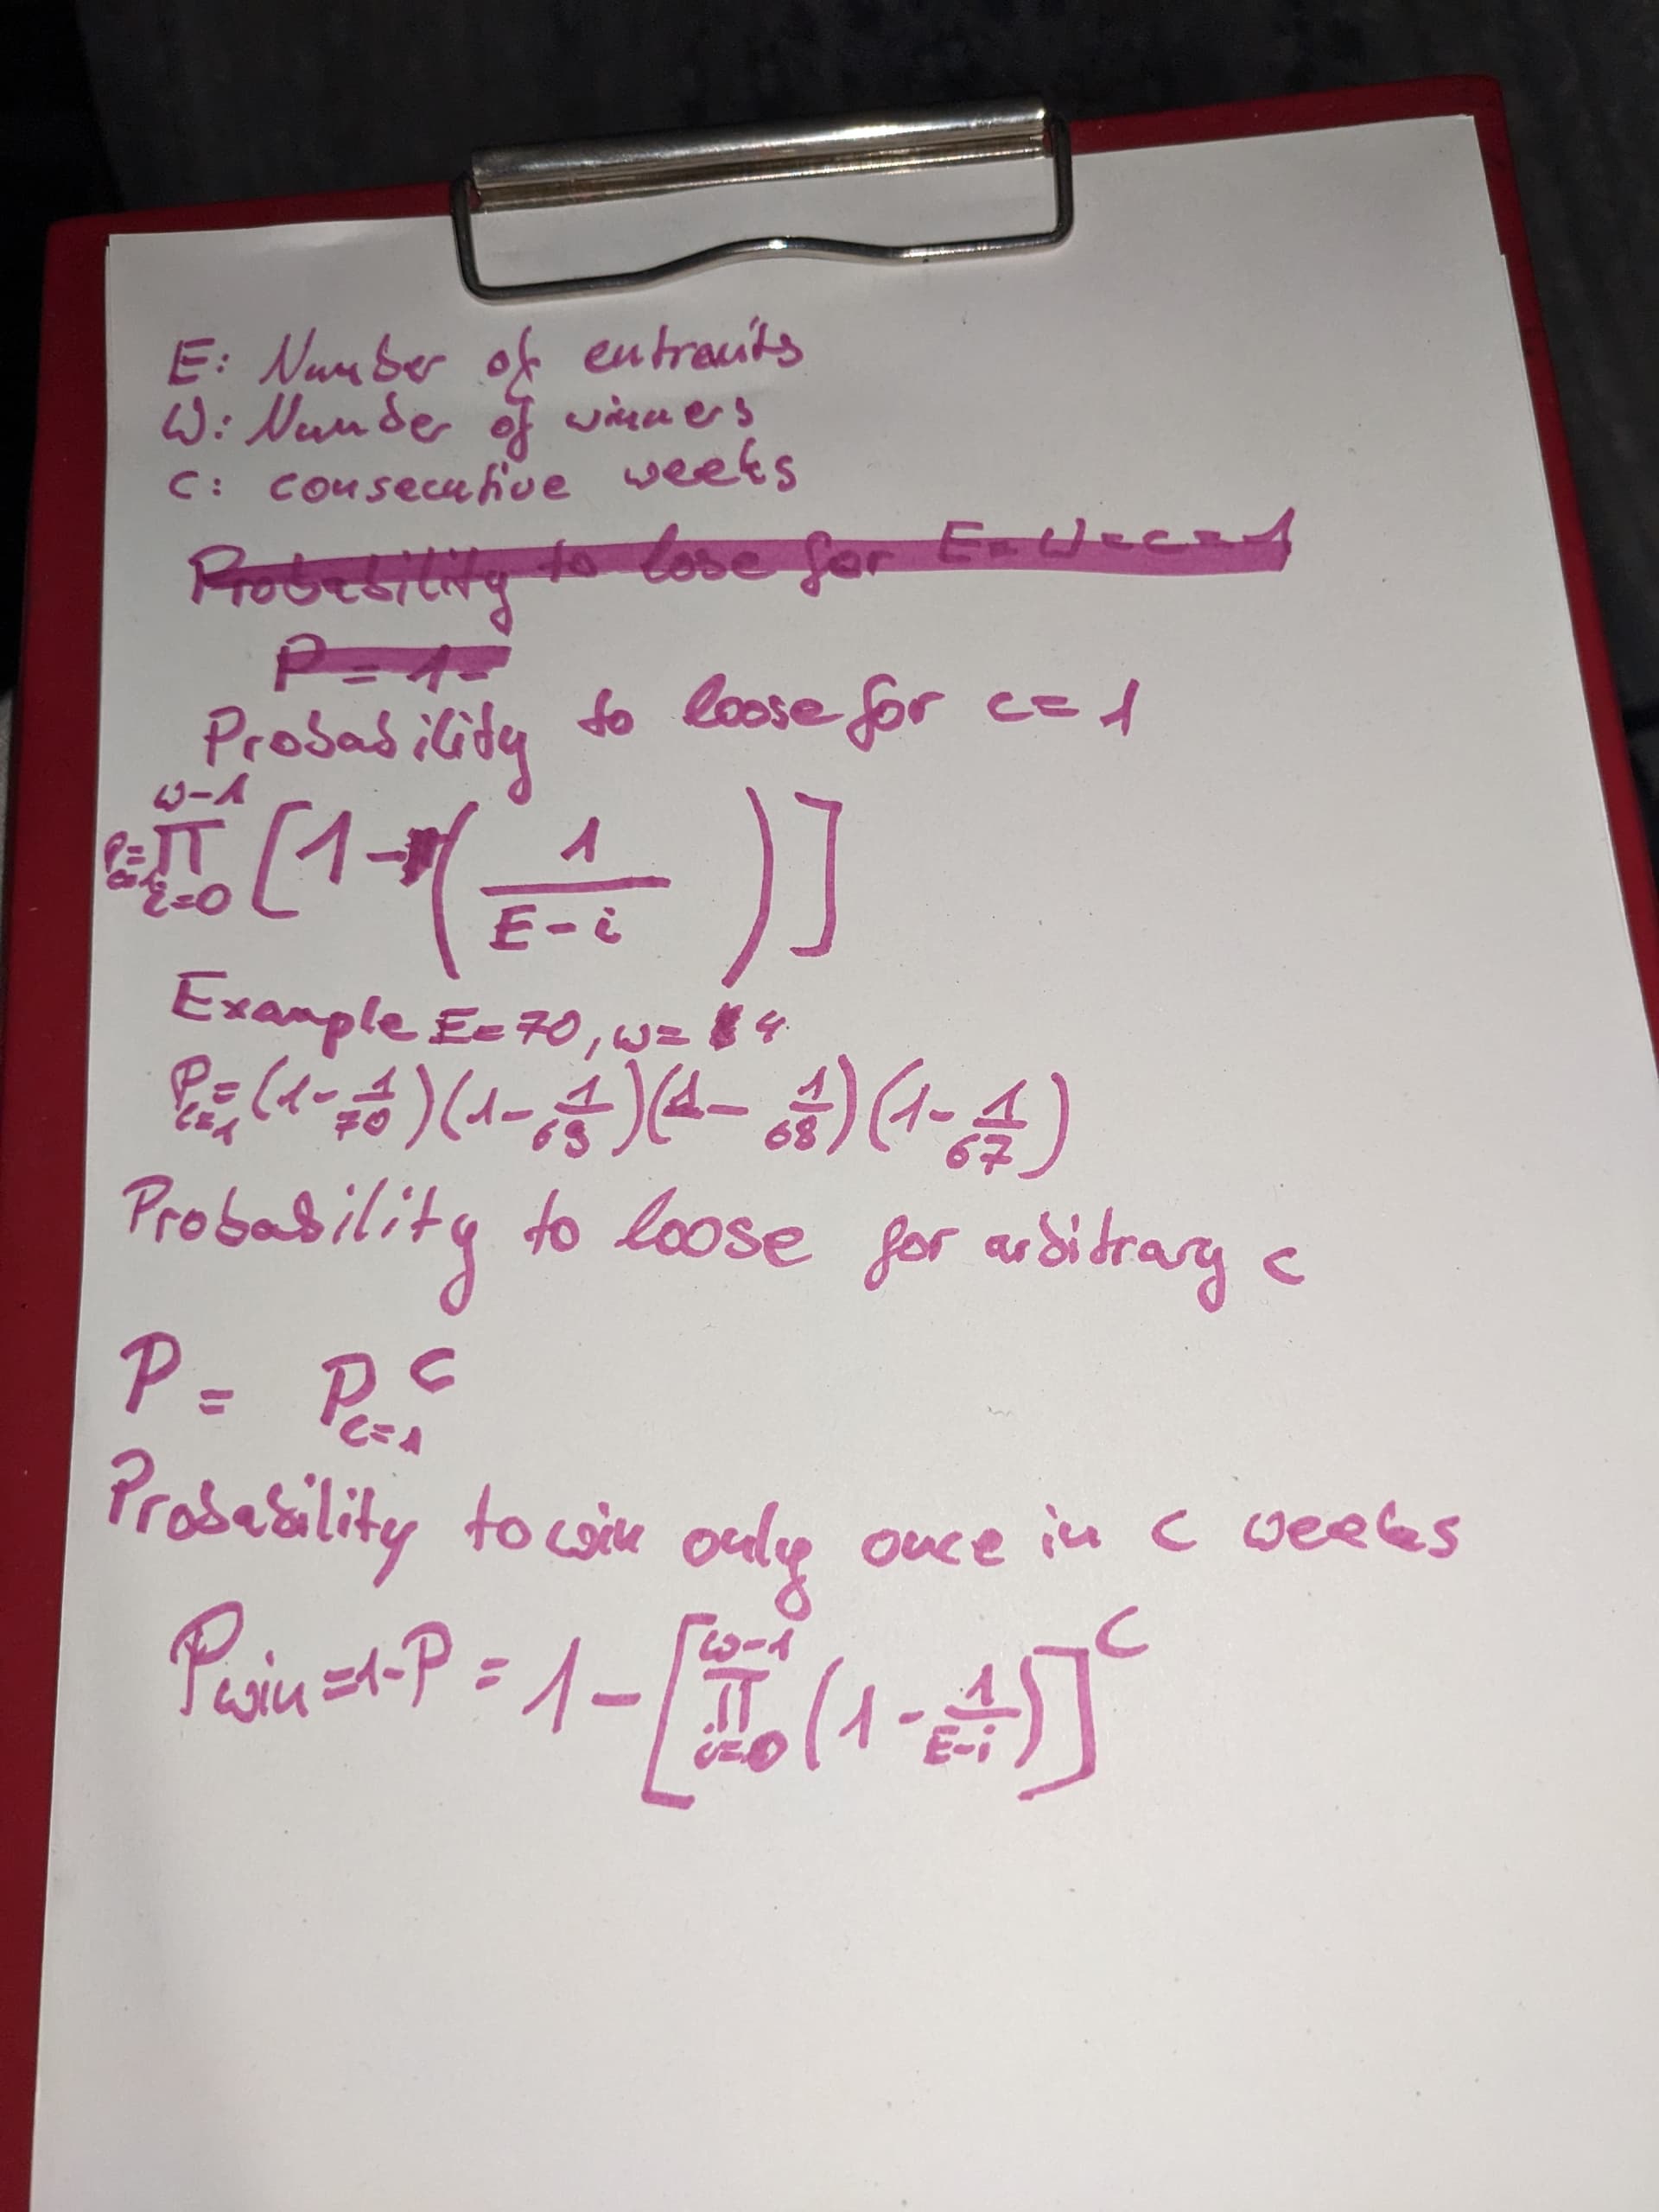 E: Number of entrants
W: Number of winners
c: consecutive weeks
Probability to lose for E=W=c=1
P=1-
Probability to loose for c=1
P_{c=1} = ∏_{i=0}^{w-1} [1-(1/(E-i))]
Example E=70, w=4
P_{c=1} = (1-1/70)(1-1/69)(1-1/68)(1-1/67)
Probability to loose for arbitrary c
P = P_{c=1}^c
Probability to win only once in c weeks
P_{win} = 1-P = 1-[∏_{i=0}^{w-1} (1-1/(E-i))]^c